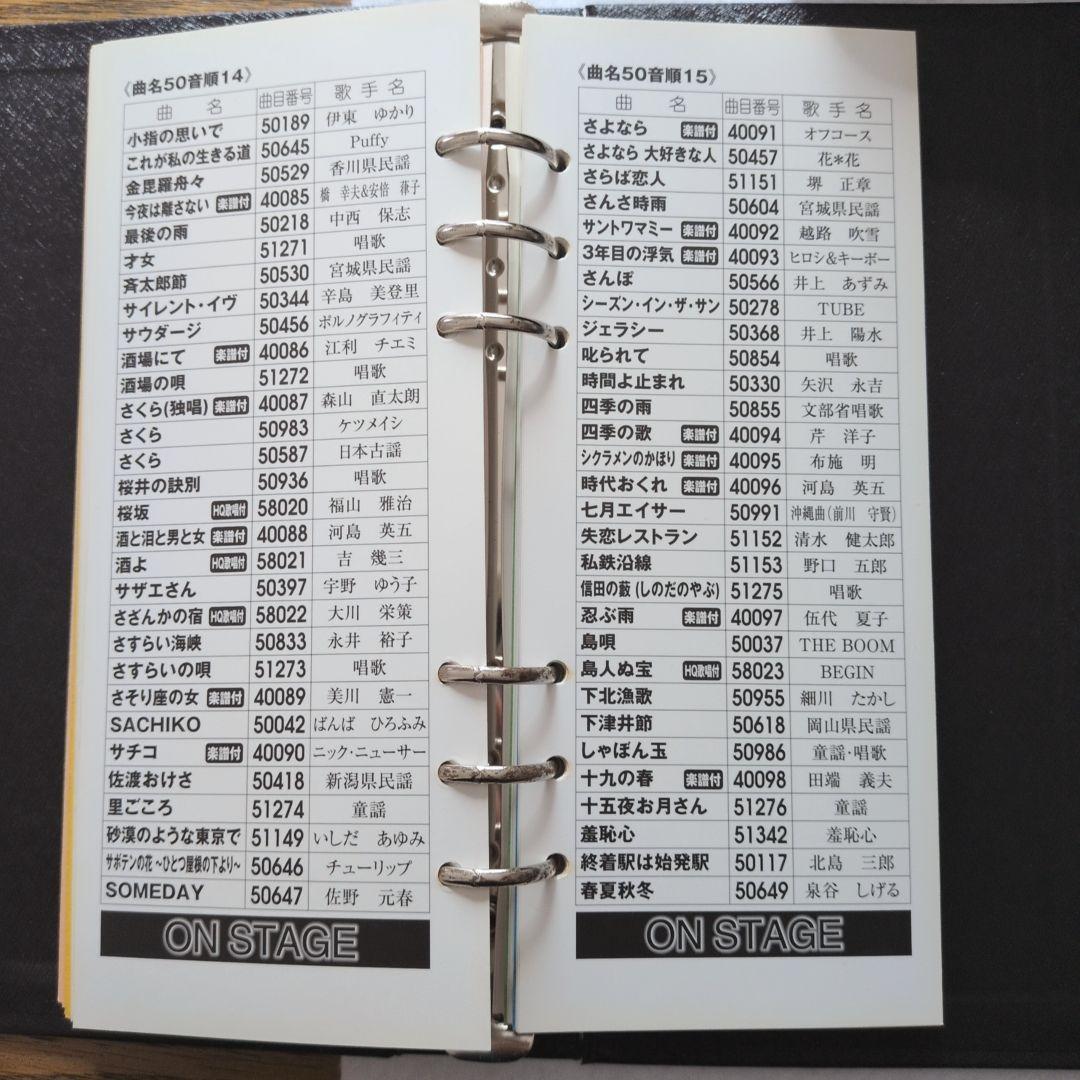 《曲名50音順14》
曲 名 曲目番号 歌手名
小指の思いで 50189 伊東 ゆかり
これが私の生きる道 50645 Puffy
金毘羅舟々 50529 香川県民謡
今夜は離さない 楽譜付 40085 橋 幸夫&安倍 葎子
最後の雨 50218 中西 保志
才女 51271 唱歌
斉太郎節 50530 宮城県民謡
サイレント・イヴ 50344 辛島 美登里
サウダージ 50456 ポルノグラフィティ
酒場にて 楽譜付 40086 江利 チエミ
酒場の唄 51272 唱歌
さくら(独唱) 楽譜付 40087 森山 直太朗
さくら 50983 ケツメイシ
さくら 50587 日本古謡
桜井の訣別 50936 唱歌
桜坂 HQ歌唱付 58020 福山 雅治
酒と泪と男と女 楽譜付 40088 河島 英五
酒よ HQ歌唱付 58021 吉 幾三
サザエさん 50397 宇野 ゆう子
さざんかの宿 HQ歌唱付 58022 大川 栄策
さすらい海峡 50833 永井 裕子
さすらいの唄 51273 唱歌
さそり座の女 楽譜付 40089 美川 憲一
SACHIKO 50042 ばんば ひろふみ
サチコ 楽譜付 40090 ニック・ニューサー
佐渡おけさ 50418 新潟県民謡
里ごころ 51274 童謡
砂漠のような東京で 51149 いしだ あゆみ
サボテンの花 ~ひとつ屋根の下より~ 50646 チューリップ
SOMEDAY 50647 佐野 元春
ON STAGE
《曲名50音順15》
曲 名 曲目番号 歌手名
さよなら 楽譜付 40091 オフコース
さよなら 大好きな人 50457 花*花
さらば恋人 51151 堺 正章
さんさ時雨 50604 宮城県民謡
サントワマミー 楽譜付 40092 越路 吹雪
3年目の浮気 楽譜付 40093 ヒロシ&キーボー
さんぽ 50566 井上 あずみ
シーズン・イン・ザ・サン 50278 TUBE
ジェラシー 50368 井上 陽水
叱られて 50854 唱歌
時間よ止まれ 50330 矢沢 永吉
四季の雨 50855 文部省唱歌
四季の歌 楽譜付 40094 芹 洋子
シクラメンのかほり 楽譜付 40095 布施 明
時代おくれ 楽譜付 40096 河島 英五
七月エイサー 50991 沖縄曲(前川 守賢)
失恋レストラン 51152 清水 健太郎
私鉄沿線 51153 野口 五郎
信田の藪 (しのだのやぶ) 51275 唱歌
忍ぶ雨 楽譜付 40097 伍代 夏子
島唄 50037 THE BOOM
島人ぬ宝 HQ歌唱付 58023 BEGIN
下北漁歌 50955 細川 たかし
下津井節 50618 岡山県民謡
しゃぼん玉 50986 童謡・唱歌
十九の春 楽譜付 40098 田端 義夫
十五夜お月さん 51276 童謡
羞恥心 51342 羞恥心
終着駅は始発駅 50117 北島 三郎
春夏秋冬 50649 泉谷 しげる
ON STAGE